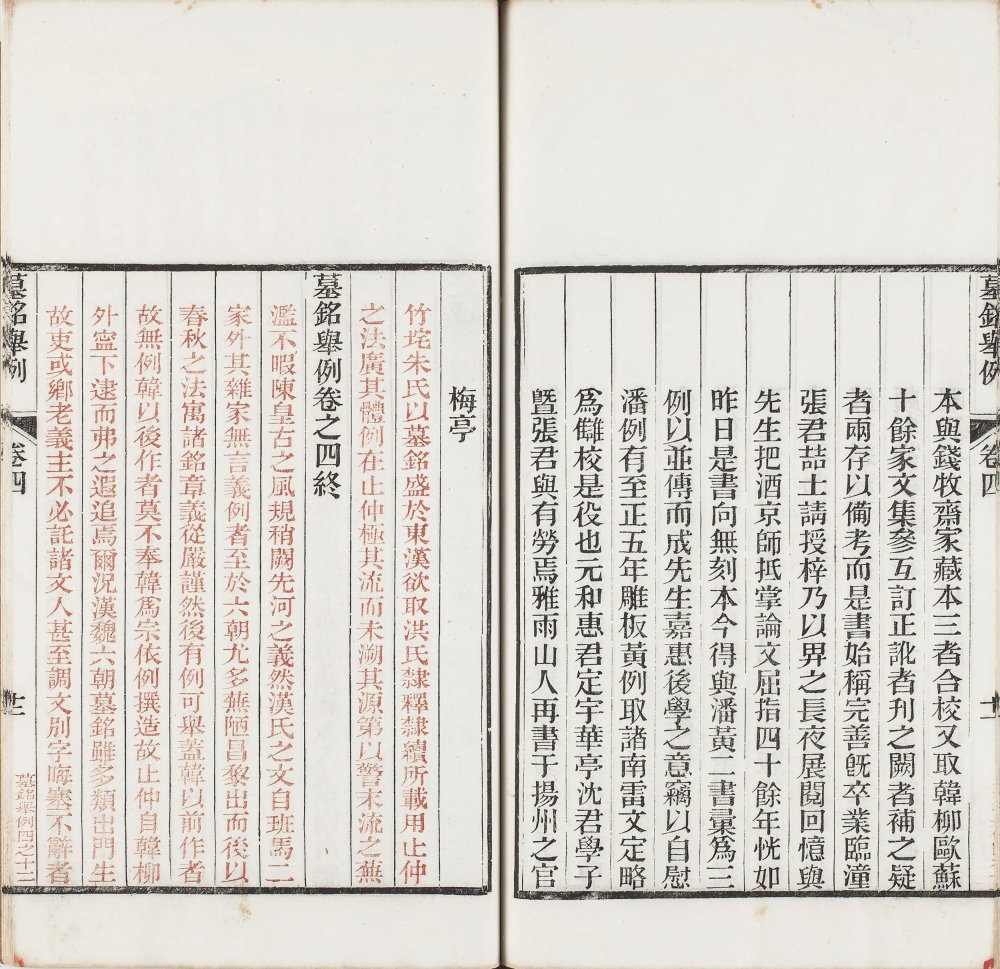 墓銘舉例
卷四
十一
本與錢牧齋家藏本三者合校又取韓柳歐蘇
十餘家文集參互訂正訛者刊之闕者補之疑
者兩存以備考而是書始稱完善旣卒業臨潼
張君喆士請授梓乃以畀之長夜展閱回憶與
先生把酒京師抵掌論文屈指四十餘年恍如
昨日是書向無刻本今得與潘黃二書彚爲三
例以並傳而成先生嘉惠後學之意竊以自慰
潘例有至正五年雕板黃例取諸南雷文定略
爲讎校是役也元和惠君定宇華亭沈君學子
曁張君與有勞焉雅雨山人再書于揚州之官
梅亭
竹垞朱氏以墓銘盛於東漢欲取洪氏隸釋隸續所載用止仲
之法廣其體例在止仲極其流而未溯其源第以警末流之蕪
墓銘舉例卷之四終
濫不暇陳皇古之風規稍闕先河之義然漢氏之文自班馬二
家外其雜家無言義例者至於六朝尤多蕪陋昌黎出而後以
春秋之法寓諸銘章義從嚴謹然後有例可舉蓋韓以前作者
故無例韓以後作者莫不奉韓爲宗依例撰造故止仲自韓柳
外寧下逮而弗之遐追焉爾況漢魏六朝墓銘雖多類出門生
故吏或鄉老義主不必託諸文人甚至調文別字晦塞不辭者
墓銘舉例
卷四
十二
墓銘舉例四之十二